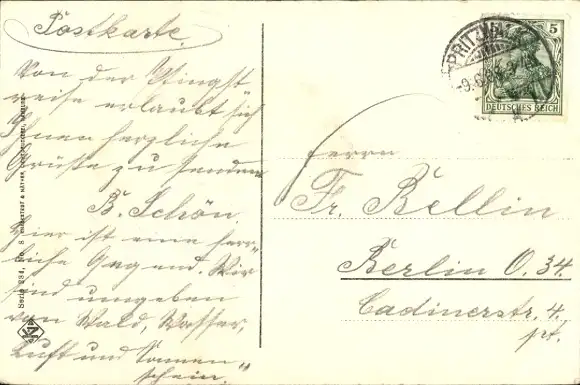 Postkarte.
Von der Pfingst-
reise erlaubt sich
Ihnen herzliche
Grüße zu senden
B. Schön.
Hier ist eine herr-
liche Gegend. Wir
sind umgeben
von Wald, Wasser,
Luft und Sonnen-
schein.
Herrn
Fr. Bellin
Berlin O. 34.
Cadinerstr. 4.
pt.
PRITZWALK
5
DEUTSCHES REICH
Serie 234, No. 8